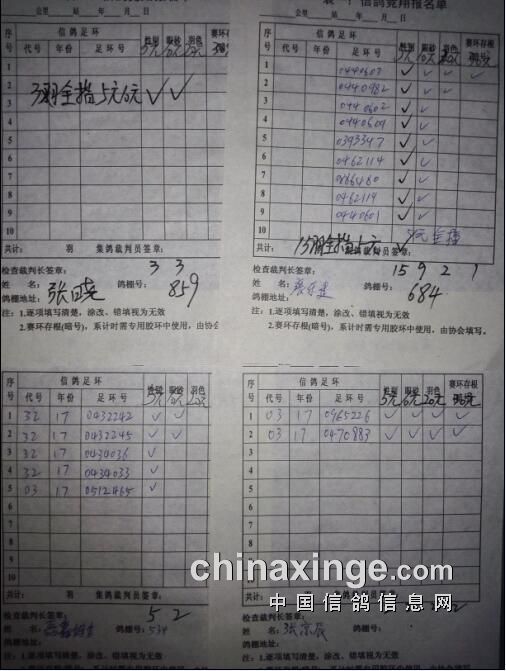 公里 站 年 月 日
序号 信鸽足环 性别 眼砂 羽色 赛环存根
代号 年份 足环号 5元 10元 20元
1
2
3羽全指5元10元 ✓ ✓
3
4
5
6
7
8
9
10
共计: 羽 集鸽裁判员签章:
3 3
检查裁判长签章:
姓 名: 张晓 鸽棚号: 859
鸽棚地址:
注: 1.逐项填写清楚,涂改、错填视为无效
2.赛环存根(暗号),系计时需专用胶环中使用,由协会填写。
信鸽竞翔报名单
公里 站 年 月 日
序号 信鸽足环 性别 眼砂 羽色 赛环存根
代号 年份 足环号 5元 10元 20元
1 0440607 ✓ ✓ ✓ ✓
2 0440982 ✓ ✓ ✓
3 0440602 ✓ ✓
4 0440609 ✓ ✓
5 0393347 ✓ ✓
6 0462114 ✓ ✓
7 0866480 ✓ ✓
8 0462119 ✓ ✓
9 0440601 ✓ ✓
10
共计: 15羽全指5元 ✓ 集鸽裁判员签章:
15 9 2 1
检查裁判长签章:
姓 名: 鸽棚号: 684
鸽棚地址:
注: 1.逐项填写清楚,涂改、错填视为无效
2.赛环存根(暗号),系计时需专用胶环中使用,由协会填写。
序号 信鸽足环 性别 眼砂 羽色
代号 年份 足环号 5元 10元 20元
1 32 17 0432242 ✓ ✓
2 32 17 0432245 ✓ ✓
3 32 17 0434036 ✓
4 32 17 0434033 ✓
5 03 17 0512465 ✓
6
7
8
9
10
共计: 羽 集鸽裁判员签章:
5 2
检查裁判长签章:
姓 名: 鸽棚号: 534
鸽棚地址:
注: 1.逐项填写清楚、涂改、错填视为无效
序号 信鸽足环 性别 眼砂 羽色 赛环存根
代号 年份 足环号 5元 10元 20元
1 03 17 0965226 ✓ ✓ ✓ ✓
2 03 17 0470883 ✓ ✓ ✓ ✓
3
4
5
6
7
8
9
10
共计:
检查裁判长签章:
姓 名: 张京辰 鸽棚号:
鸽棚地址:
注: 1.逐项填写清楚、涂改、错填视为无效
chinaxinge.com
中国信鸽信息网